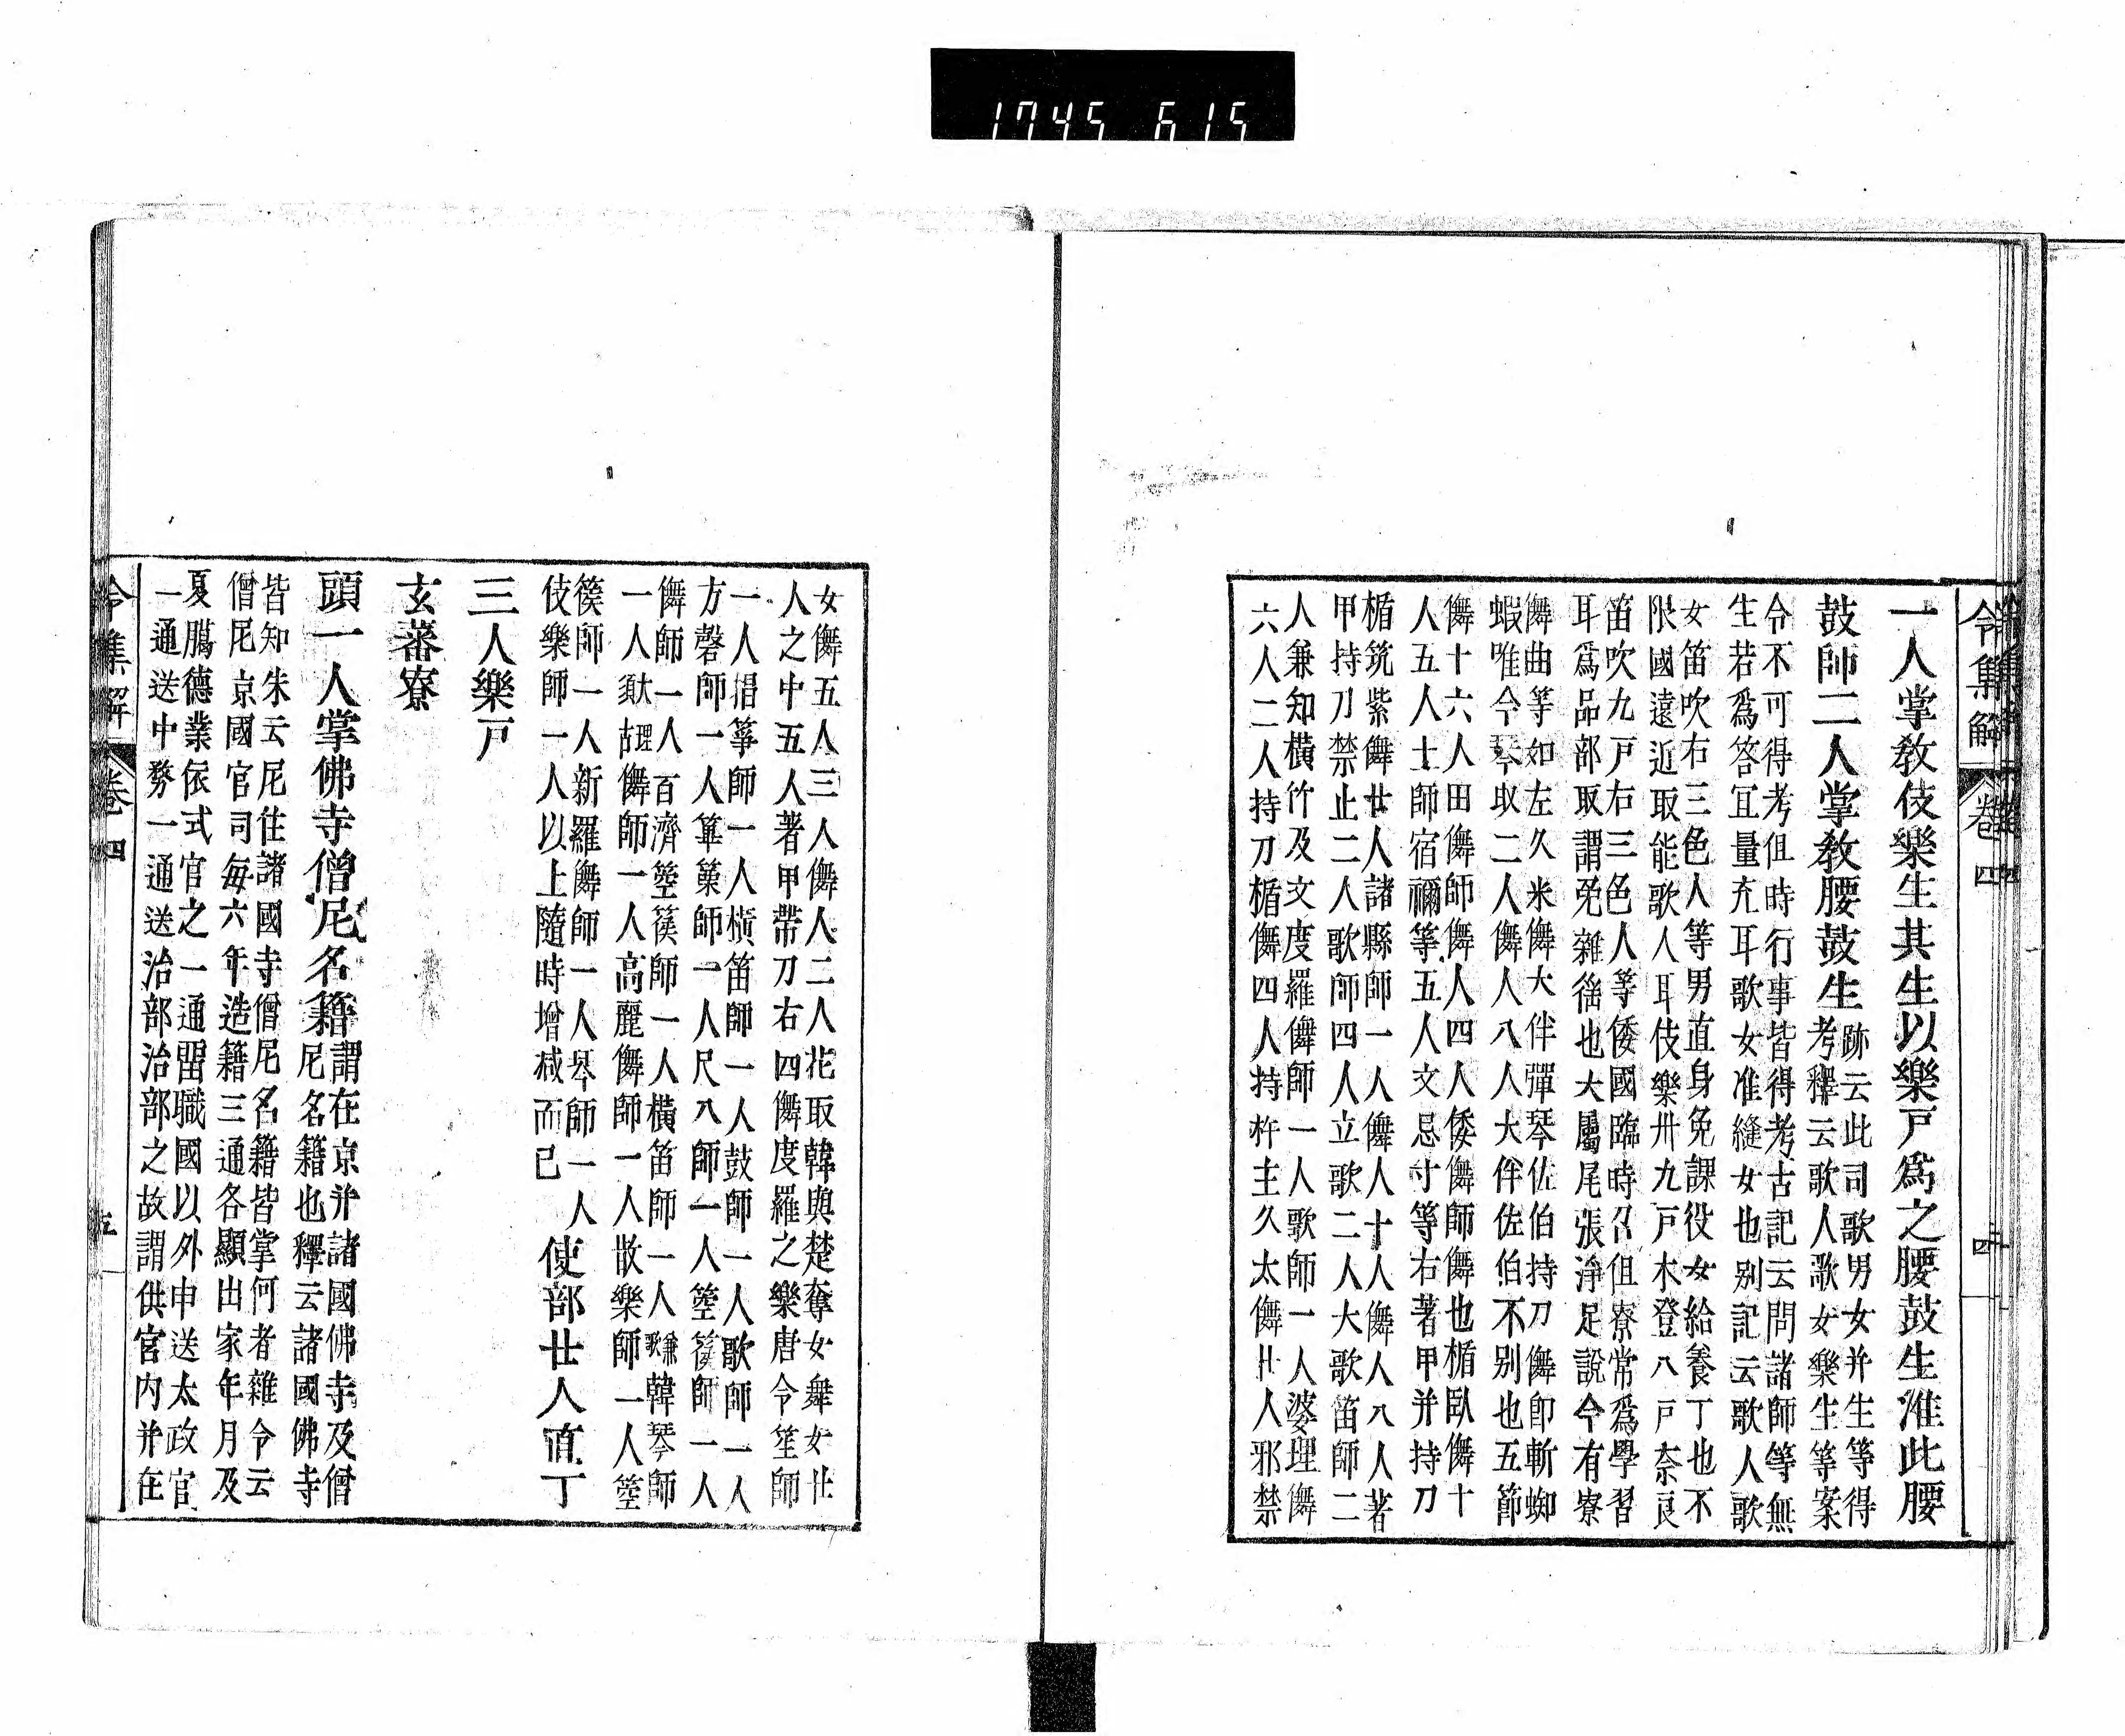 1745 615
令集解 卷四 四
一人掌教伎樂生其生以樂戸爲之腰鼓生准此腰
鼓師二人掌教腰鼓生
跡云此司歌男女并生等得
考釋云歌人歌女樂生等案
令不可得考但時行事皆得考古記云問諸師等無
生若爲答冝量充耳歌女准縫女也別記云歌人歌
女笛吹右三色人等男直身免課役女給養丁也不
限國遠近取能歌人耳伎樂卅九戸木登八戸奈良
笛吹九戸右三色人等倭國臨時召但寮常爲學習
耳爲品部取謂免雜徭也大屬尾張淨足說今有寮
儛曲等如左久米儛大伴彈琴佐伯持刀儛即斬蜘
蝦唯今琴取二人儛人八人大伴佐伯不別也五節
儛十六人田儛師儛人四人倭儛師儛也楯臥儛十
人五人土師宿禰等五人文忌寸等右著甲并持刀
楯筑紫儛廿人諸縣師一人儛人十人儛人八人著
甲持刀禁止二人歌師四人立歌二人大歌笛師二
人兼知橫竹及文度羅儛師一人歌師一人婆理儛
六人二人持刀楯儛四人持杵主久太儛廿人邪禁
女儛五人三人儛人二人花取韓與楚奪女舞女廿
人之中五人著甲帶刀右四儛度羅之樂唐令笙師
一人搊箏師一人橫笛師一人鼓師一人歌師一人
方磬師一人篳篥師一人尺八師一人箜篌師一人
儛師一人百濟箜篌師一人橫笛師一人兼歌韓琴師
一人理古儛師一人高麗儛師一人散樂師一人箜
篌師一人新羅儛師一人琴師一人
伎樂師一人以上隨時增減而已
使部廿人直丁
三人樂戸
玄蕃寮
頭一人掌佛寺僧尼名籍
謂在京并諸國佛寺及僧
尼名籍也釋云諸國佛寺
皆知朱云尼住諸國寺僧尼名籍皆掌何者雜令云
僧尼京國官司每六年造籍三通各顯出家年月及
夏臈德業依式官之一通留職國以外申送太政官
一通送中務一通送治部治部之故謂供官内并在
令集解 卷四 五